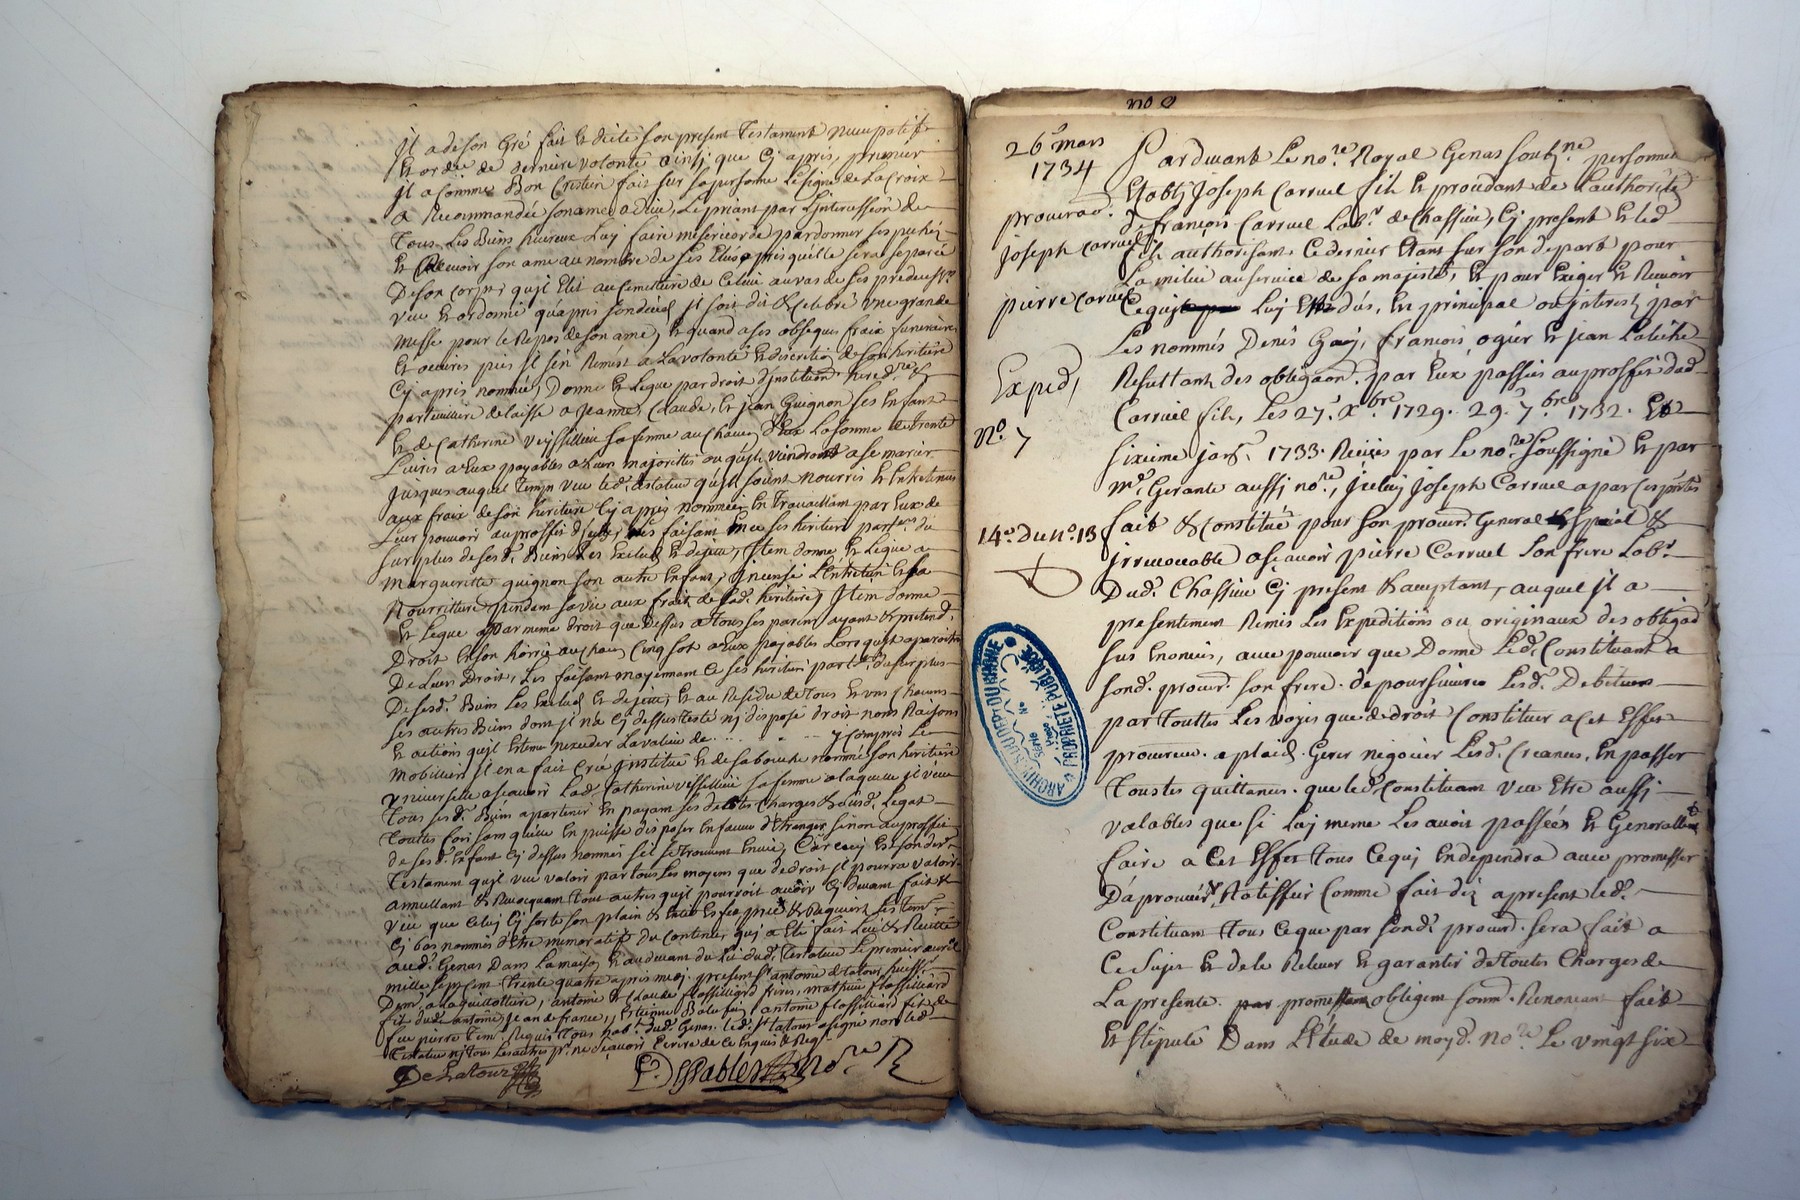 Il a de son gré fait et dicté son present Testament nuncupatif
et ordce de derniere volonté ainsi que cy apres, premier
il a comme Bon Crestien fait sur sa personne le signe de la Croix
a Recommandée son ame a dieu, le priant par l'intercession de
Tous les Biens hureux luy faire misericorde pardonner ses pechés
et Recevoir son ame au nombre de ses Elus apres qu'elle sera separée
De son corps, qu'il Elit au cimetiere de
veut et ordonne qu'apres son deced il soit dit et celebré une grande
messe pour le Repos de son ame, et quand a ses obseques fraix funeraires
et oeuvres pies il s'en Remest a la volonté et discretion de son heritiere
cy apres nommée, Donne et Legue par droit d'institution
particuliere delaisse a jeanne, Claude, et jean Guignon ses Enfant
et de Catherine sa femme au chacun d'Eux la somme de trente
Livres a Eux payables a Leurs majorittés ou qu'ils viendront a se marier
jusques auquel Temps veut led. testateur qu'ils soient nourris et Entretenus
aux fraix de son heritiere cy apres nommée En Travaillant par Eux de
Leur pouvoir au proffit d'icelle, Les faisant ses heritiers partrs du
surplus de sesd. Biens Les Exclud et dejette, Item donne et Legue a
Marguerite guignon son autre Enfant, L'Entretien et sa
Nourritture pendant sa vie aux fraix de sad. heritiere, Item donne
et Legue par meme droit que Dessus a tous ses parens ayant et pretend.
Droit En son hoirie au chacun Cinq sols a Eux payables Lors qu'il apparoitra
De Leurs Droit, Les faisant moyennant ce ses heritiers part. du surplus
De sesd. Biens Les Exclud et dejette, Et au Residu de Tous et uns chacuns
ses autres Biens dont il n'a cy dessus Testé ny disposé droit noms Raisons
et actions qu'il Estime n'exceder La valeur de . . . . . y compris le
mobilier il en a fait Créé institué et de sa bouche nommé son heritiere
universelle a scavoir Lad. Catherine sa femme a laquelle il veut
Tous sesd. Biens apartenir En payant ses dettes Charges et susd. Legat
Touttes fois sans qu'elle En puisse disposer En faveur d'Etrangers sinon au proffit
de sesd. Enfant cy dessus nommés s'il se trouvent En vie, Car cecy Est son der.
Testament qu'il veut valoir par tous les moyens que de droit il pourra valoir
annullant et Revocquant tout autres qu'il pourroit avoir cy devant fait et
veut que celuy cy sorte son plain et Entier Effet prié et Requient les Tems
cy bas nommés d'Etre memoratif du contenu, qui a Eté fait Leu et Recitté
aud. Genas Dans La maison et au devant du Lit dud. Testateur Le premier avril
mille sept cens Trente quatre apres midy present St antoine de latour huiss.
Demt a la guillottiere, antoine et Claude flassilliard freres, mathieu flassilliard
fils dud. antoine, jean de france, Estienne antoine flassilliard fils de
feu pierre Tem. Requis Tous habt. dud. Genas. Led. St latour a signé non led.
Testateur ny Tous Les autres pr. ne scavoir Ecrire de ce Enquis et Reqs
De Latour
E. DesSables No.re R
no 8
26e mars
1734
procurаon.
Joseph Carruel
pierre Carruel
Exped,
No. 7
14e. du no. 13
Pardevant Le nore. Royal Genas soubzne. personnel.
Etably Joseph Carruel fils et procedant de L'authorité
de françois Carruel Labr. de Chassieu, cy present et led.
fils authorisant Ce dernier Etant sur son depart pour
La milice au service de sa majesté, Et pour Exiger et Recevoir
Ce qui Luy Est dûs, En principal ou interest, par
Les nommés Denis Gaÿ, françois ogier et jean
Resultant des obligaon. par Eux passées au proffit dud.
Carruel fils, Les 27e. Xbre. 1729. 29e. 7bre 1732. Et
sixieme janr. 1733. Recües par Le nore. Soussigné et par
me. Gerante aussy nore., Icelui Joseph Carruel a par ces ptes
fait et Constitué pour son procur. General et Special et
irrevocable a scavoir pierre Carruel son frere Labr.
Dud. Chassieu cy present et acceptant, auquel il a
presentement Remis Les Expeditions ou originaux des obligaõ.
sus Enoncées, avec pouvoir que Donne Led. Constituant a
sond. procur. son frere. de poursuivre Lesd. Debiteurs
par Touttes Les voyes que de droit Constituer a cet Effet
procureur. a plaid. Gerer negocier Lesd. Creances, En passer
Touttes quittances. que led. Constituant veut Etre aussy
valables que si Luy meme Les avoit passées et Generallemt
faire a Cet Effet Tous Cequy En dependra avec promesse
D'aprouver, Ratiffier Comme fait dez a present led.
Constituant Tous Ceque par sond. procur. sera fait a
Ce Sujet et de le Relever et garantir de Toutes Charges de
La presente. par promesses obligeons soumd. Renonceant fait
Et stipulé Dans L'Etude de moyd. nore. Le vingt six
ARCHIVES DU DEPT DU RHONE
PROPRIETE PUBLIQUE
Serie No